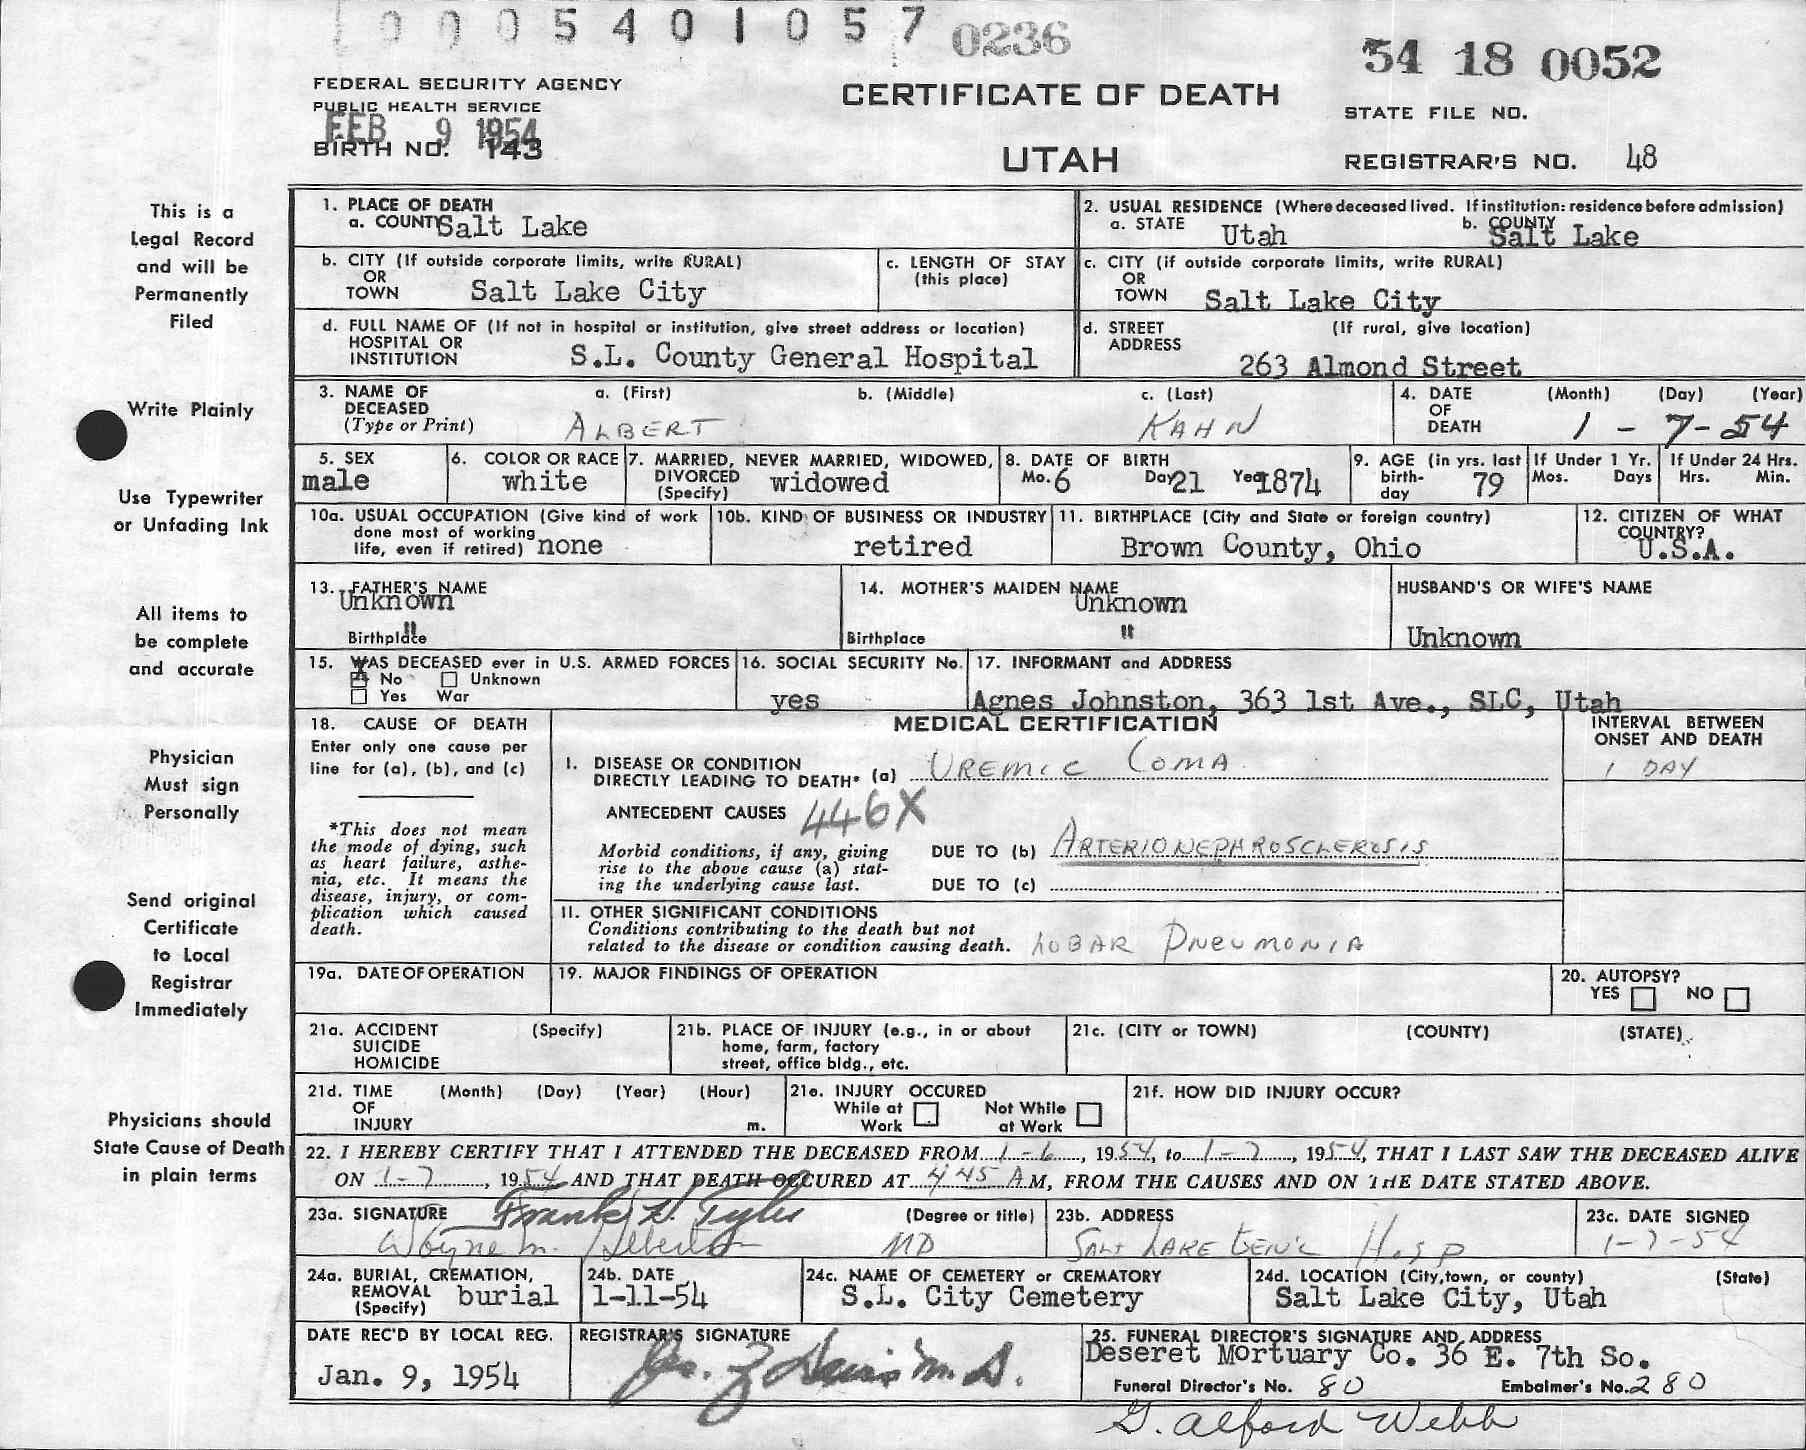 0005401057 0236 54 18 0052
FEDERAL SECURITY AGENCY
PUBLIC HEALTH SERVICE
FEB 9 1954
BIRTH NO. 143
CERTIFICATE OF DEATH
UTAH
STATE FILE NO.
REGISTRAR'S NO. 48
This is a
Legal Record
and will be
Permanently
Filed
Write Plainly
Use Typewriter
or Unfading Ink
All items to
be complete
and accurate
Physician
Must sign
Personally
Send original
Certificate
to Local
Registrar
Immediately
Physicians should
State Cause of Death
in plain terms
1. PLACE OF DEATH
a. COUNTY Salt Lake
2. USUAL RESIDENCE (Where deceased lived. If institution: residence before admission)
a. STATE Utah b. COUNTY Salt Lake
b. CITY (If outside corporate limits, write RURAL)
OR
TOWN Salt Lake City
c. LENGTH OF STAY
(this place)
c. CITY (if outside corporate limits, write RURAL)
OR
TOWN Salt Lake City
d. FULL NAME OF (If not in hospital or institution, give street address or location)
HOSPITAL OR
INSTITUTION S.L. County General Hospital
d. STREET (If rural, give location)
ADDRESS 263 Almond Street
3. NAME OF DECEASED (Type or Print)
a. (First) b. (Middle) c. (Last)
ALBERT KAHN
4. DATE OF DEATH (Month) (Day) (Year)
1 - 7 - 54
5. SEX
male
6. COLOR OR RACE
white
7. MARRIED, NEVER MARRIED, WIDOWED,
DIVORCED (Specify) widowed
8. DATE OF BIRTH
Mo. 6 Day 21 Year 1874
9. AGE (in yrs. last birth-day 79
If Under 1 Yr.
Mos. Days
If Under 24 Hrs.
Hrs. Min.
10a. USUAL OCCUPATION (Give kind of work
done most of working
life, even if retired) none
10b. KIND OF BUSINESS OR INDUSTRY
retired
11. BIRTHPLACE (City and State or foreign country)
Brown County, Ohio
12. CITIZEN OF WHAT
COUNTRY?
U.S.A.
13. FATHER'S NAME
Unknown
Birthplace "
14. MOTHER'S MAIDEN NAME
Unknown
Birthplace "
HUSBAND'S OR WIFE'S NAME
Unknown
15. WAS DECEASED ever in U.S. ARMED FORCES
X No Unknown
Yes War
16. SOCIAL SECURITY No.
yes
17. INFORMANT and ADDRESS
Agnes Johnston, 363 1st Ave., SLC, Utah
18. CAUSE OF DEATH
Enter only one cause per
line for (a), (b), and (c)
*This does not mean
the mode of dying, such
as heart failure, asthe-
nia, etc. It means the
disease, injury, or com-
plication which caused
death.
MEDICAL CERTIFICATION
INTERVAL BETWEEN
ONSET AND DEATH
I. DISEASE OR CONDITION
DIRECTLY LEADING TO DEATH* (a) UREMIC COMA 1 DAY
ANTECEDENT CAUSES 446X
Morbid conditions, if any, giving
rise to the above cause (a) stat-
ing the underlying cause last.
DUE TO (b) ARTERIONEPHROSCLEROSIS
DUE TO (c)
II. OTHER SIGNIFICANT CONDITIONS
Conditions contributing to the death but not
related to the disease or condition causing death. LOBAR PNEUMONIA
19a. DATE OF OPERATION
19. MAJOR FINDINGS OF OPERATION
20. AUTOPSY?
YES NO
21a. ACCIDENT (Specify)
SUICIDE
HOMICIDE
21b. PLACE OF INJURY (e.g., in or about
home, farm, factory
street, office bldg., etc.
21c. (CITY or TOWN) (COUNTY) (STATE)
21d. TIME (Month) (Day) (Year) (Hour)
OF
INJURY m.
21e. INJURY OCCURED
While at Work Not While at Work
21f. HOW DID INJURY OCCUR?
22. I HEREBY CERTIFY THAT I ATTENDED THE DECEASED FROM 1-6, 1954, to 1-7, 1954, THAT I LAST SAW THE DECEASED ALIVE
ON 1-7, 1954 AND THAT DEATH OCCURED AT 4 45 A M, FROM THE CAUSES AND ON THE DATE STATED ABOVE.
23a. SIGNATURE Frank H. Tyler (Degree or title)
Wayne M. MD
23b. ADDRESS
SALT LAKE GEN'L HOSP
23c. DATE SIGNED
1-7-54
24a. BURIAL, CREMATION,
REMOVAL (Specify) burial
24b. DATE
1-11-54
24c. NAME OF CEMETERY or CREMATORY
S.L. City Cemetery
24d. LOCATION (City, town, or county) (State)
Salt Lake City, Utah
DATE REC'D BY LOCAL REG.
Jan. 9, 1954
REGISTRAR'S SIGNATURE
M.D.
25. FUNERAL DIRECTOR'S SIGNATURE AND ADDRESS
Deseret Mortuary Co. 36 E. 7th So.
Funeral Director's No. 80 Embalmer's No. 280
G. Alford Webb